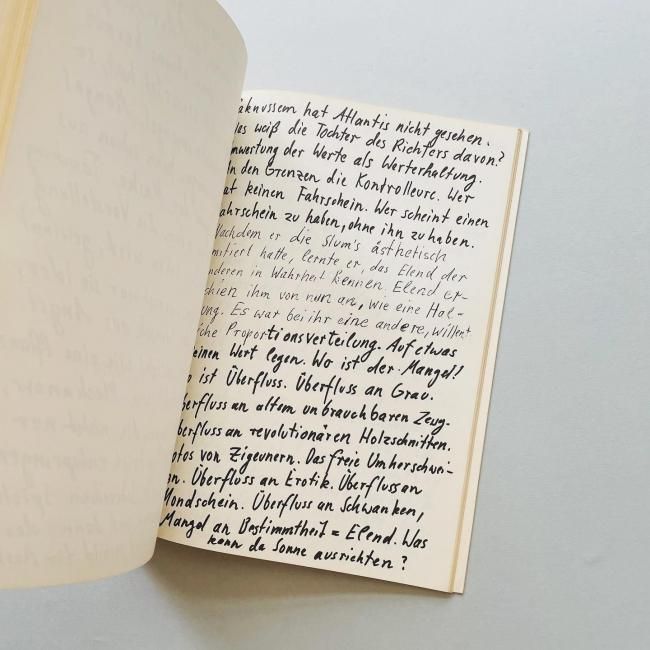 aknussem hat Atlantis nicht gesehen.
as weiß die Tochter des Richters davon?
mwertung der Werte als Werterhaltung.
n den Grenzen die Kontrolleure. Wer
at keinen Fahrschein. Wer scheint einen
ahrschein zu haben, ohne ihn zu haben.
Nachdem er die Slum's ästhetisch
mitiert hatte, lernte er, das Elend der
nderen in Wahrheit kennen. Elend er-
schien ihm von nun an, wie eine Hal-
ung. Es war bei ihr eine andere, willent
che Proportionsverteilung. Auf etwas
einen Wert legen. Wo ist der Mangel!
o ist Überfluss. Überfluss an Grau.
berfluss an altem unbrauchbaren Zeug.
berfluss an revolutionären Holzschnitten.
otos von Zigeunern. Das freie Umherschwei-
n. Überfluss an Erotik. Überfluss an
Mondschein. Überfluss an Schwanken,
Mangel an Bestimmtheit = Elend. Was
kann da Sonne ausrichten?